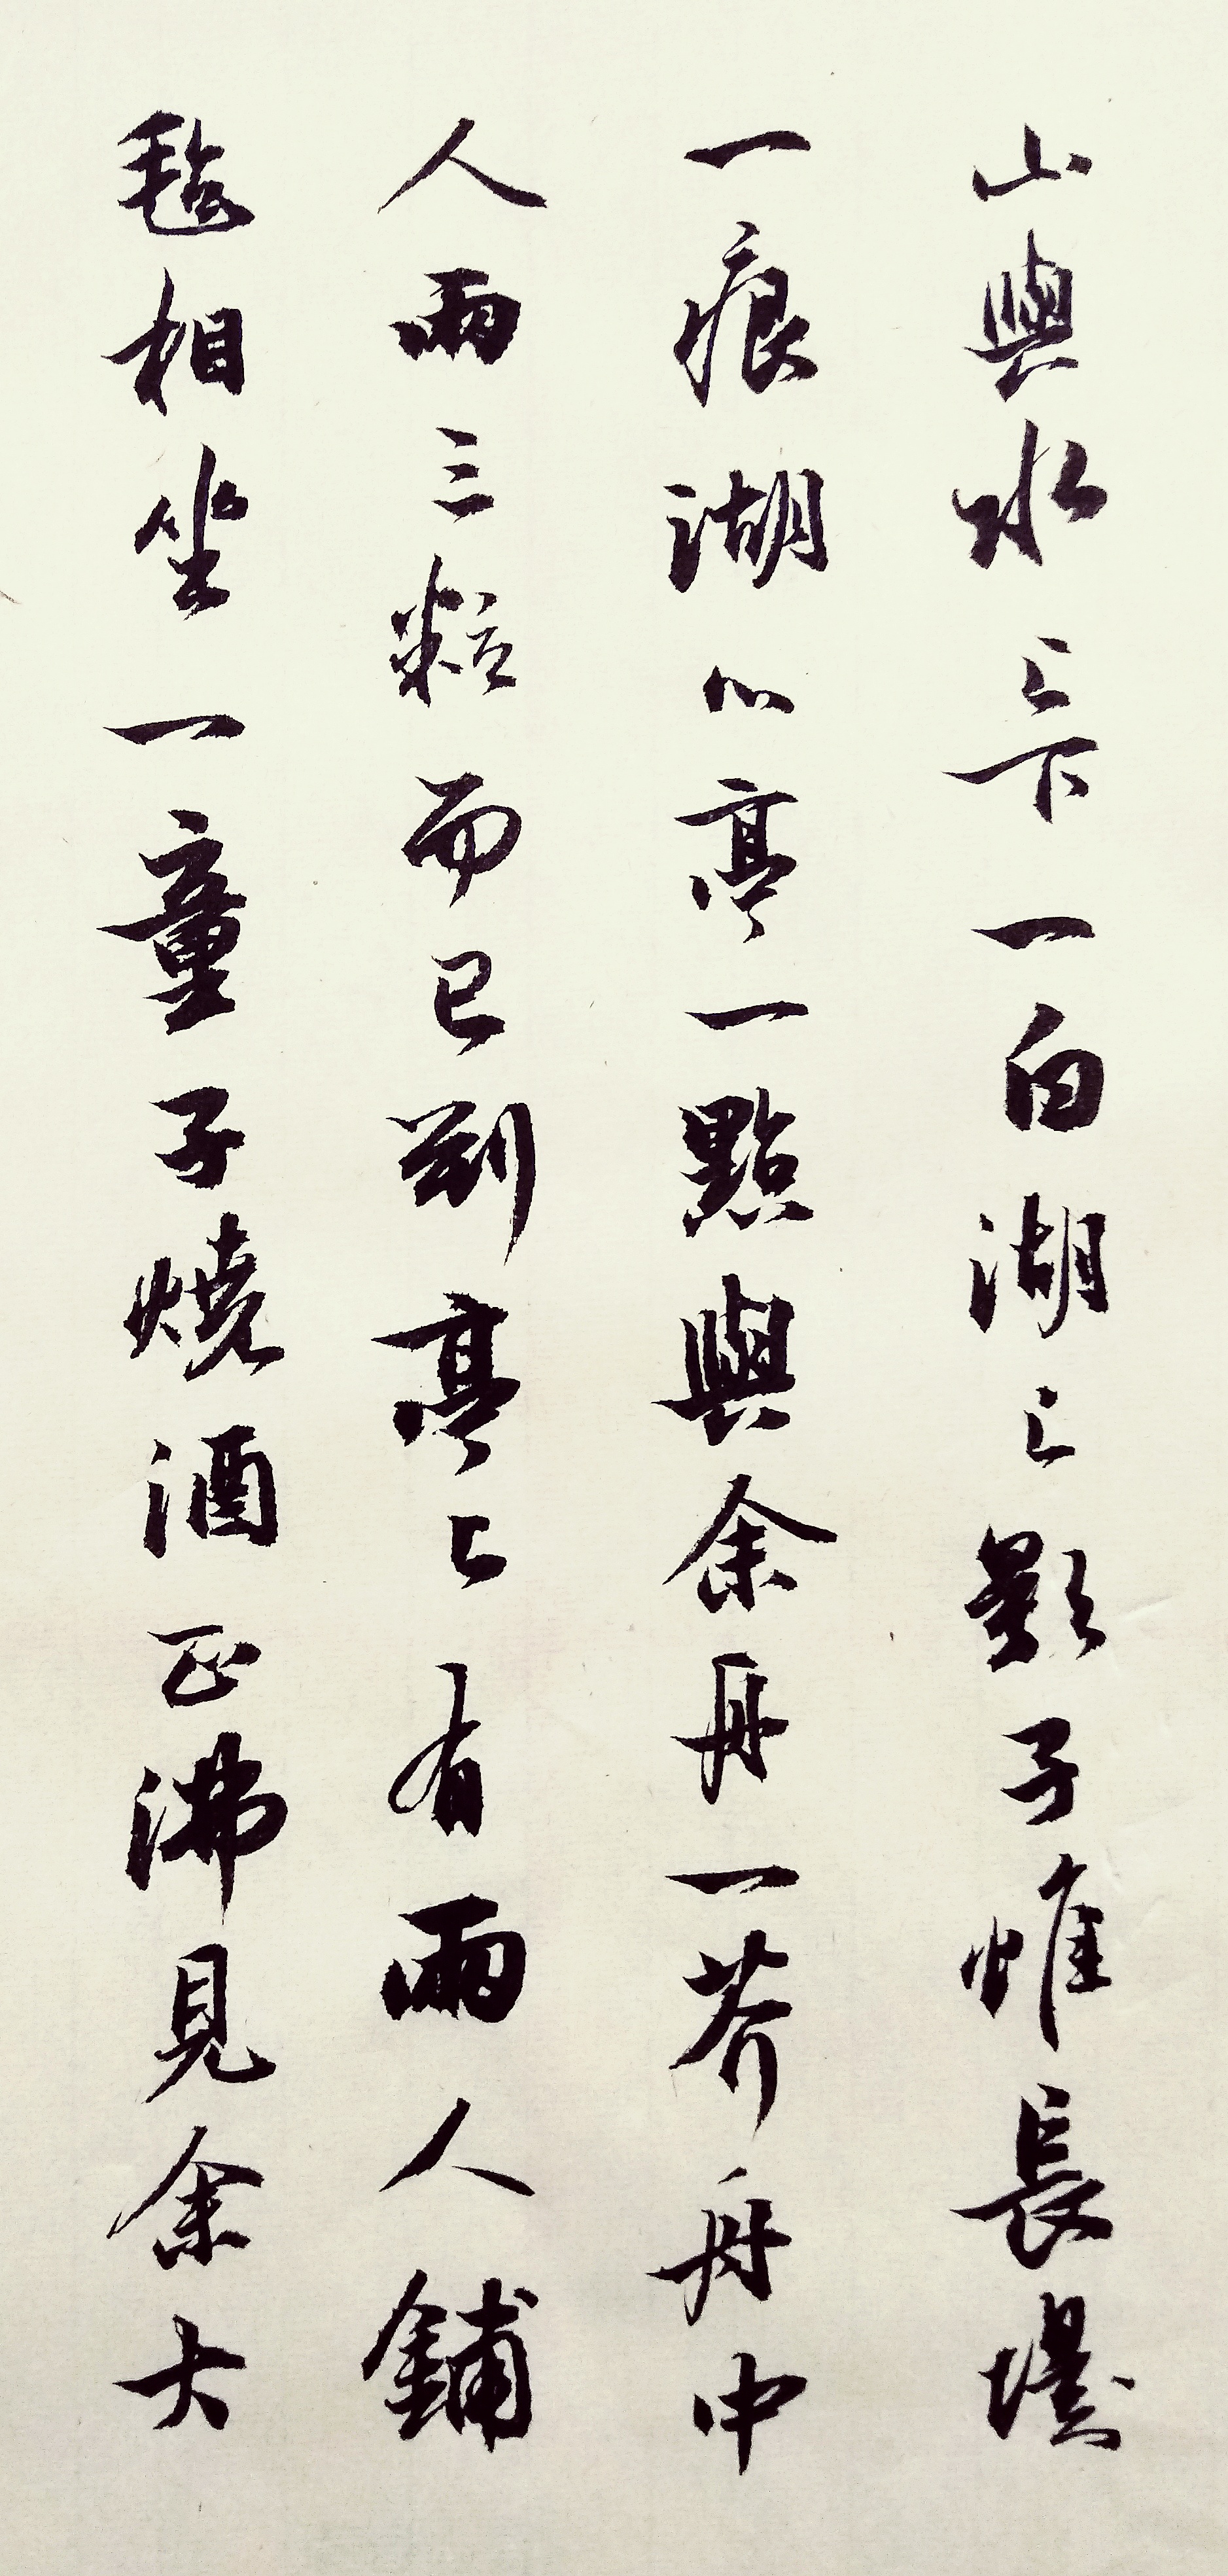 山與水上下一白湖上影子惟長堤
一痕湖心亭一點與余舟一芥舟中
人兩三粒而已到亭上有兩人鋪
氈相坐一童子燒酒正沸見余大